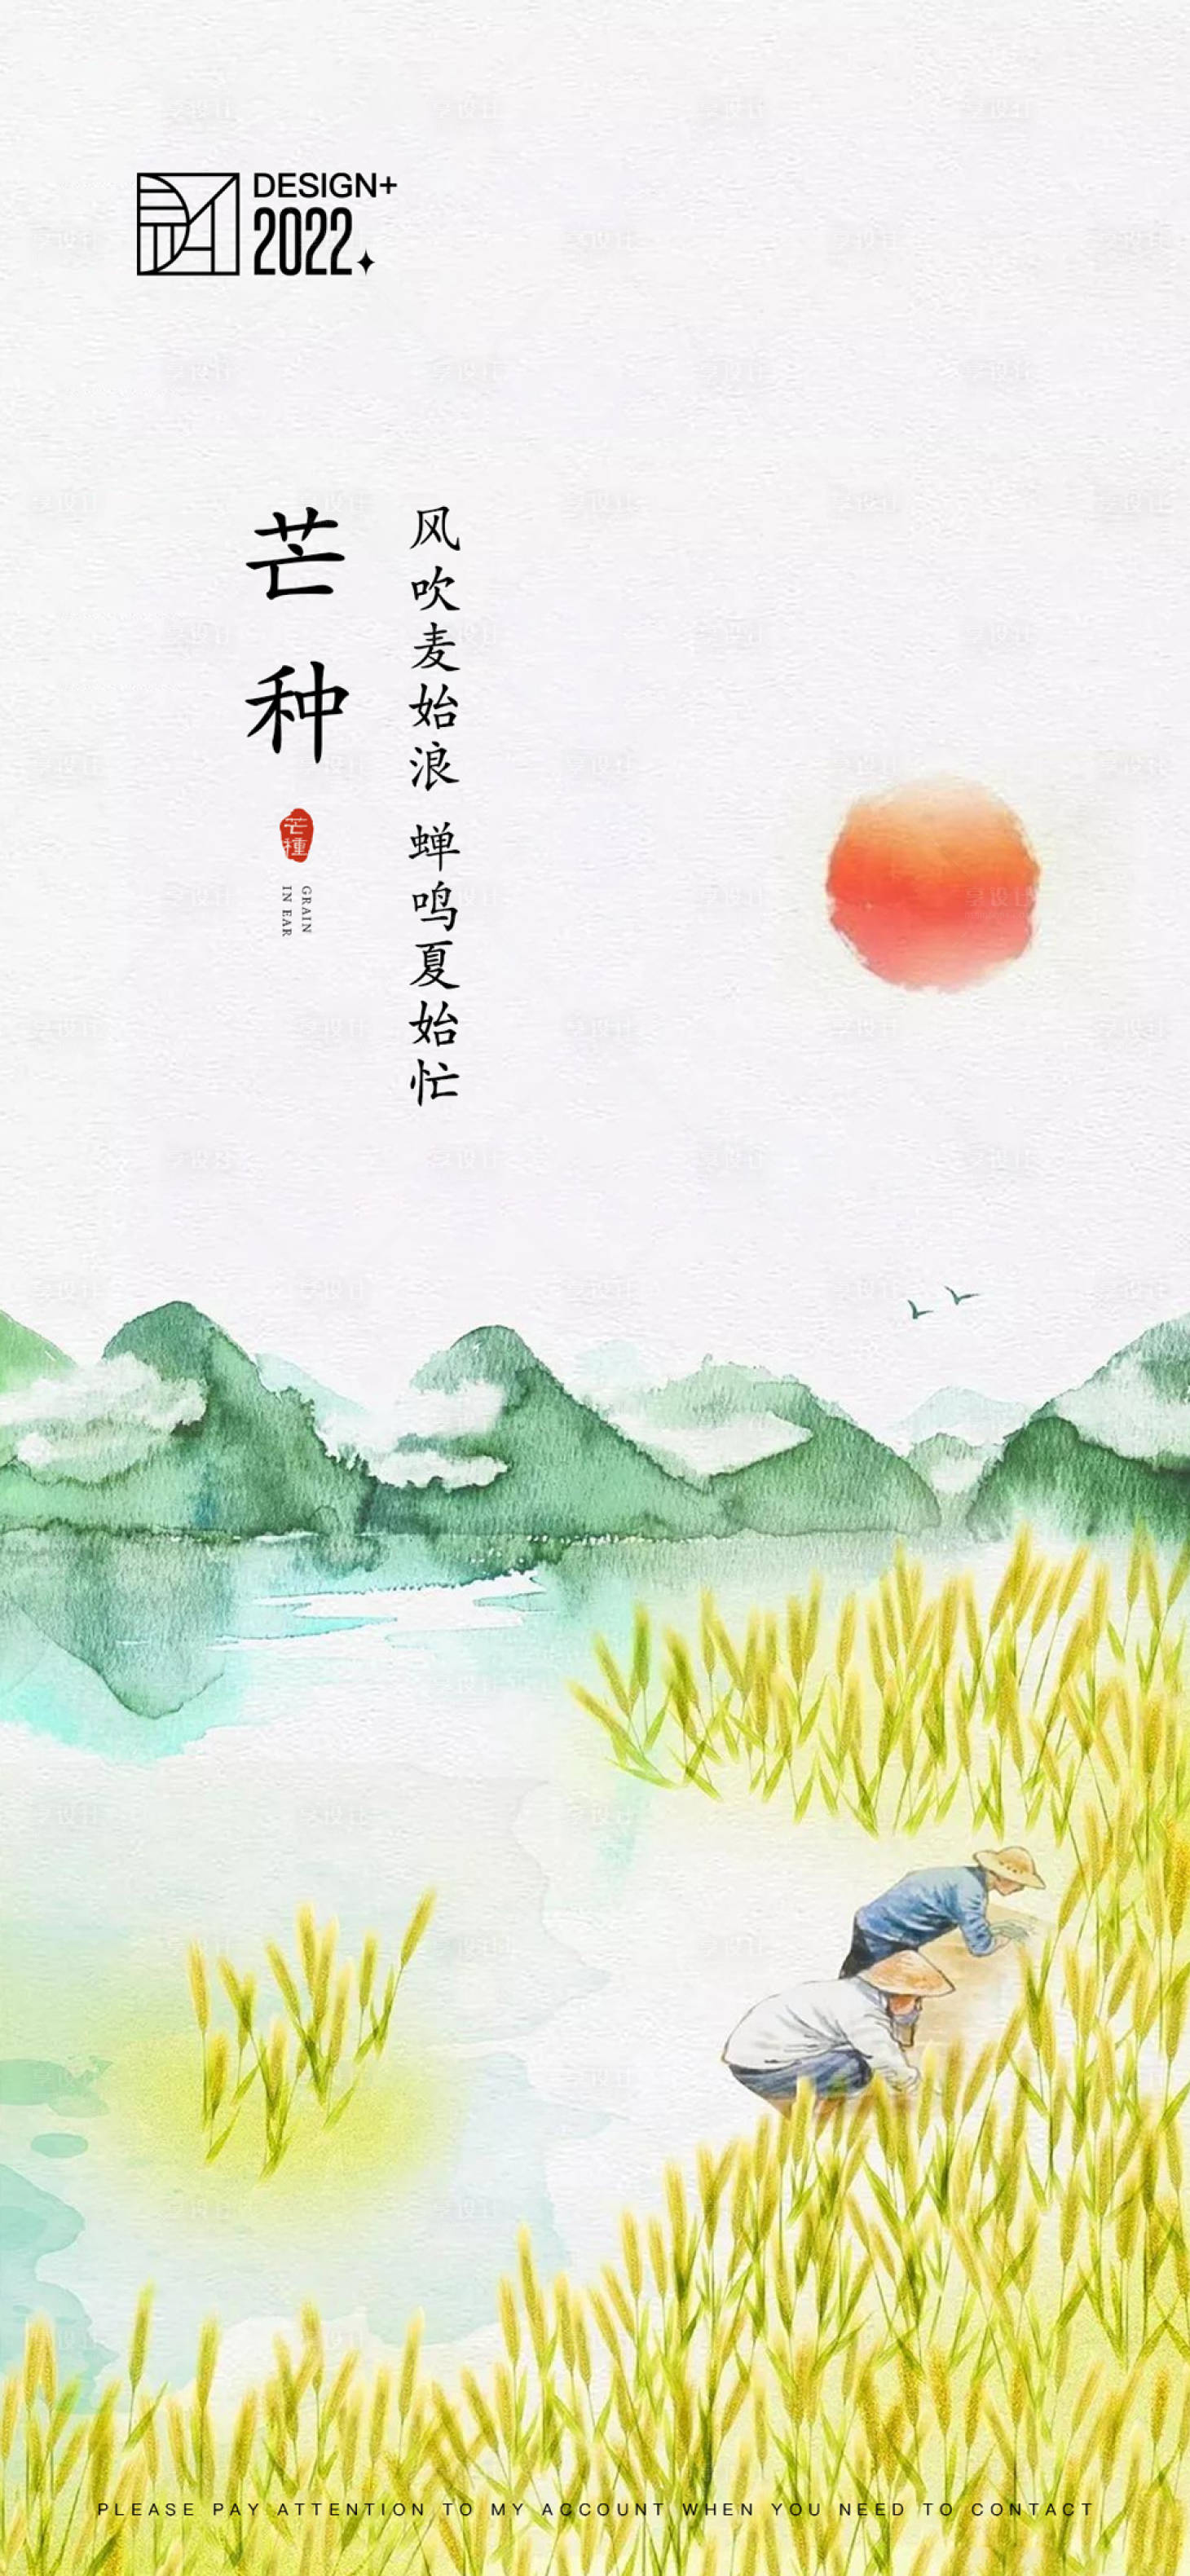 DESIGN+
2022
芒种
芒種
GRAIN
IN EAR
风吹麦始浪 蝉鸣夏始忙
享设计
PLEASE PAY ATTENTION TO MY ACCOUNT WHEN YOU NEED TO CONTACT